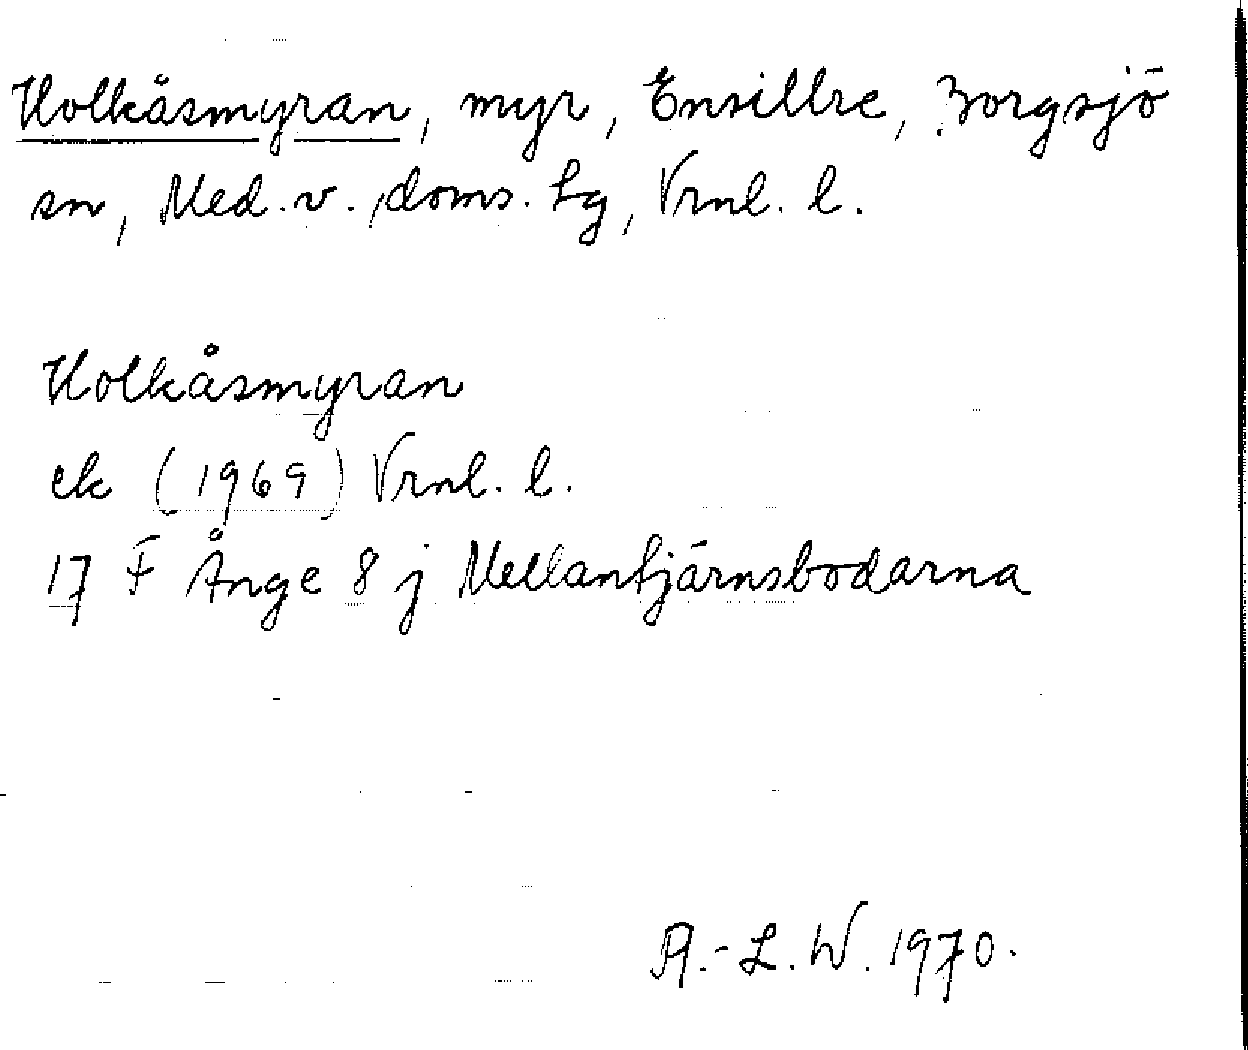 Holkåsmyran, myr, Ensillre, Borgsjö
sn, Med. v. doms. tg, Vrnl. l.
Holkåsmyran
ek (1969) Vrnl. l.
17 F Ånge 8 j Mellantjärnsbodarna
A.-L. W. 1970.